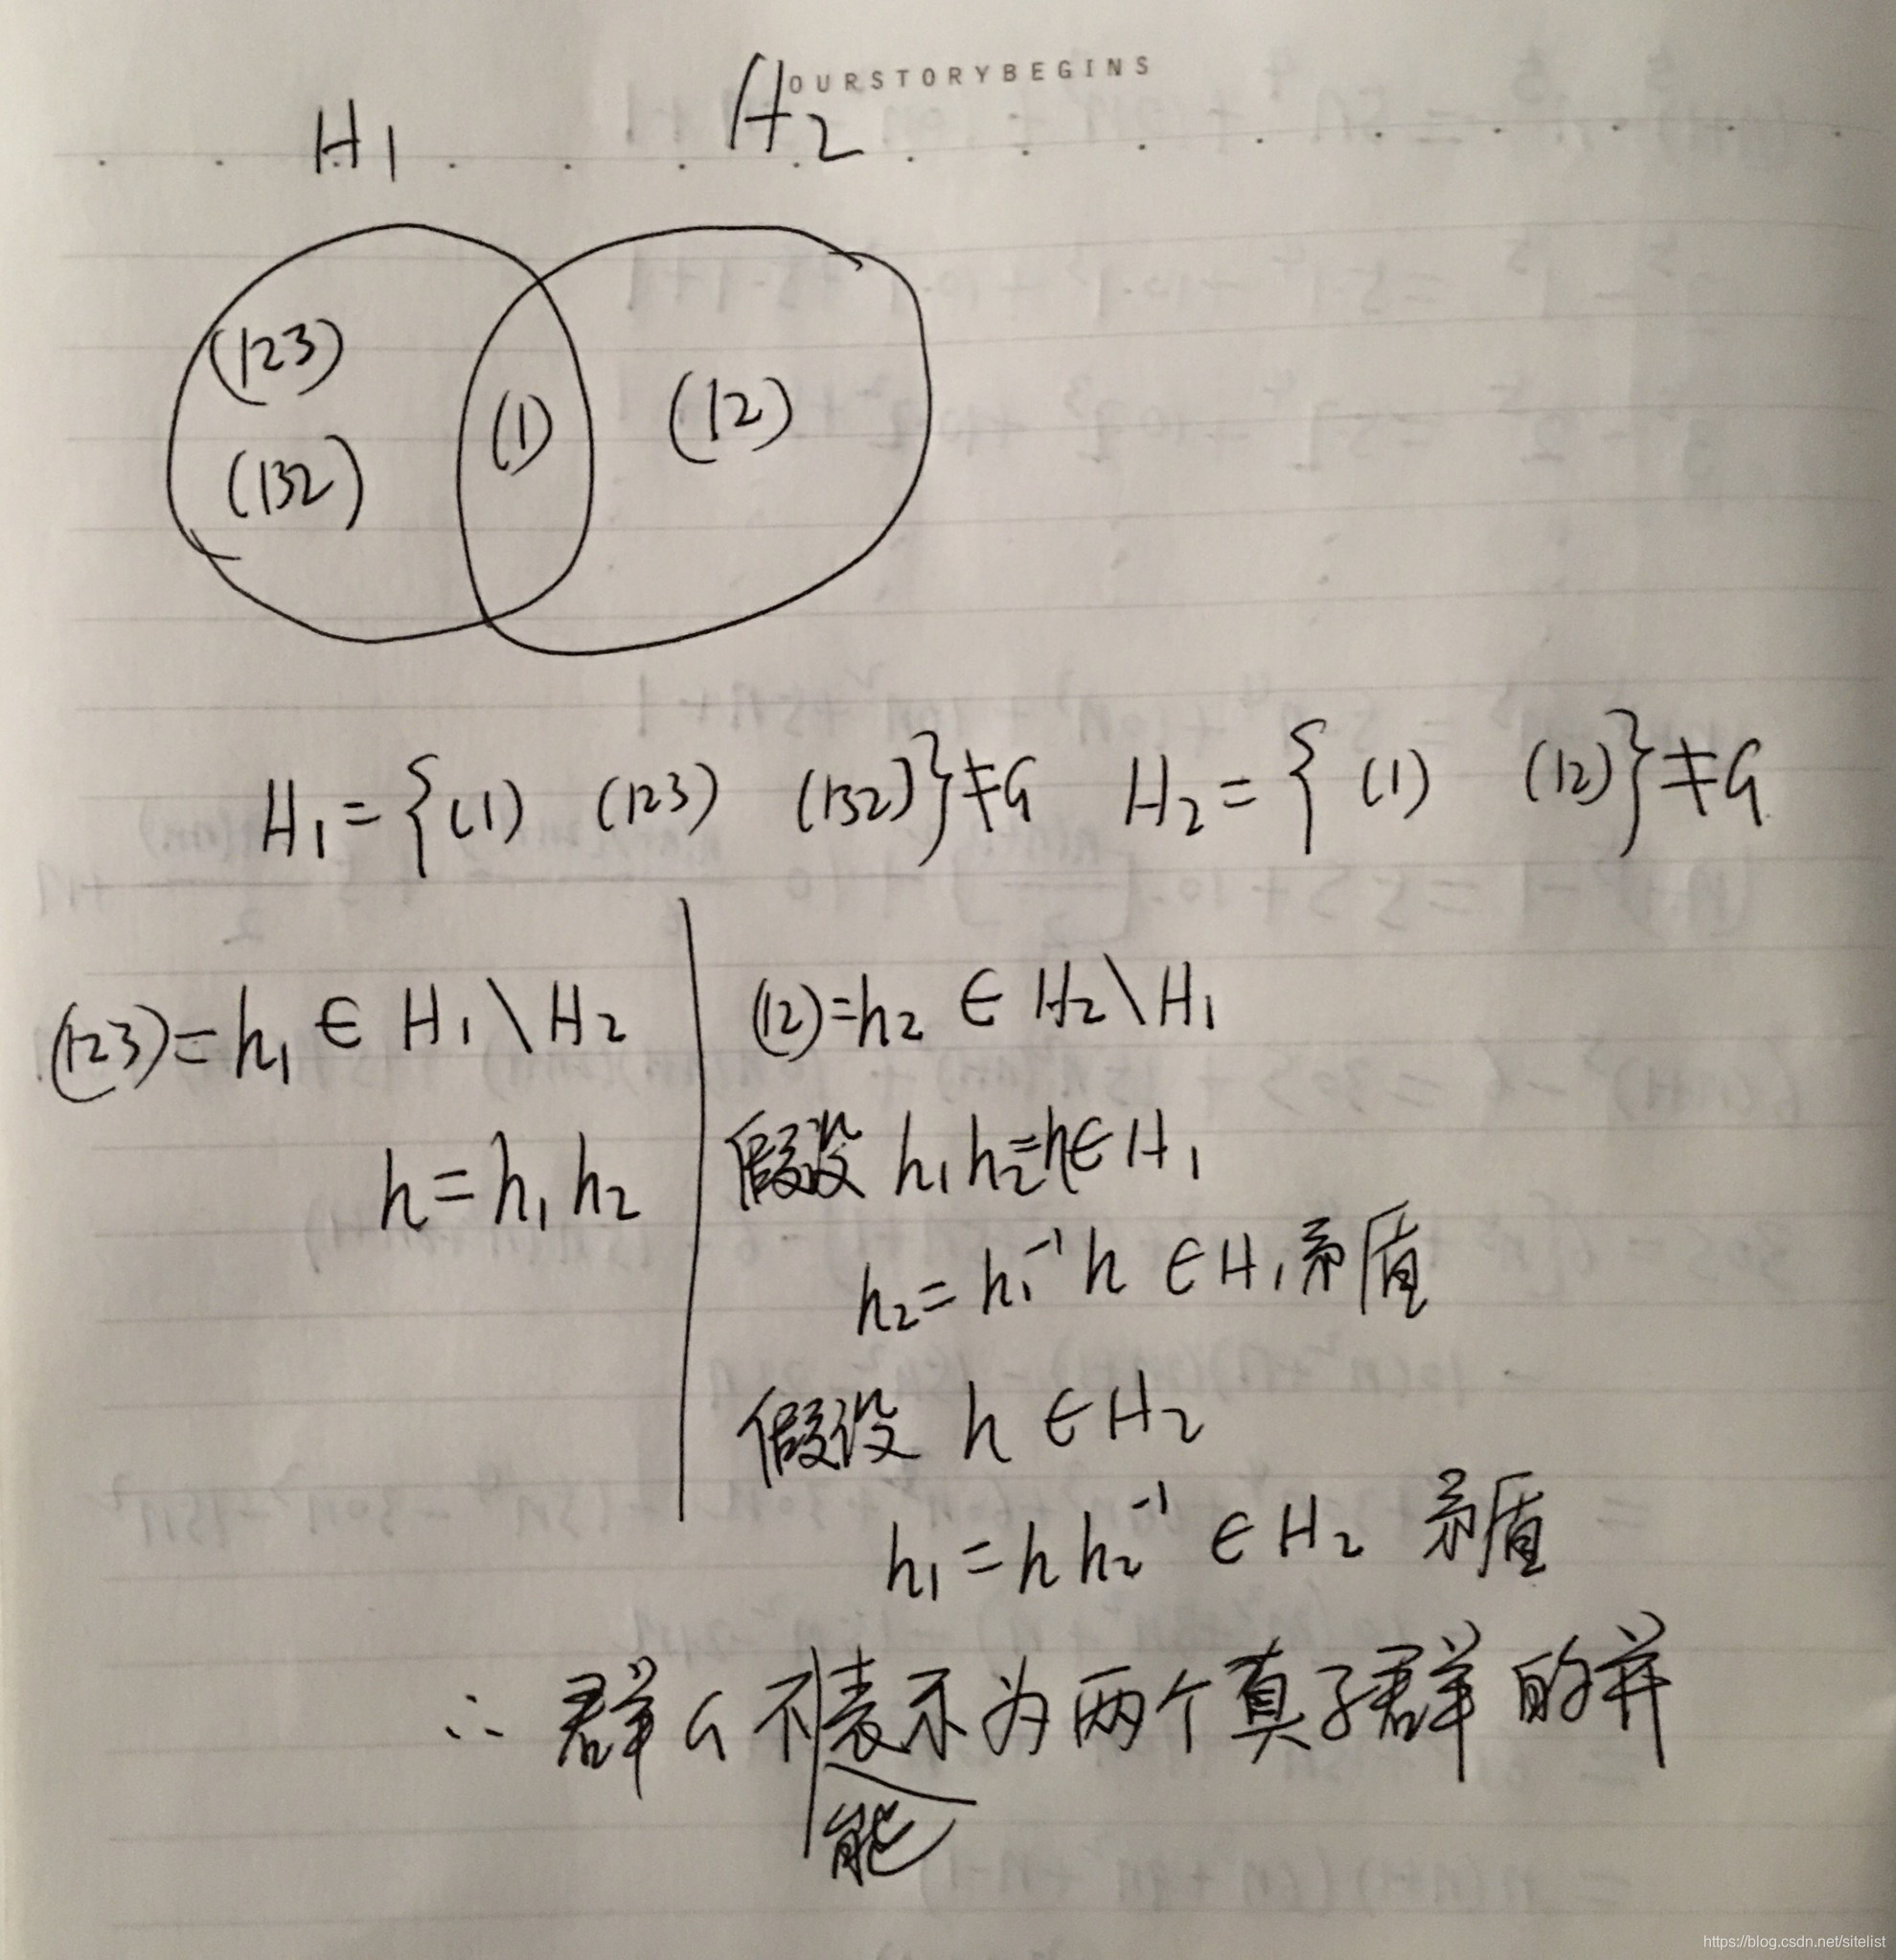 OURSTORYBEGINS
H₁ H₂
(123)
(132)
(1)
(12)
H₁={(1) (123) (132)}≠G H₂={(1) (12)}≠G
(123)=h₁∈H₁\H₂
h=h₁h₂
(12)=h₂∈H₂\H₁
假设 h₁h₂=h∈H₁
h₂=h₁⁻¹h∈H₁矛盾
假设 h∈H₂
h₁=hh₂⁻¹∈H₂ 矛盾
∴群G不能表示为两个真子群的并
https://blog.csdn.net/sitelist